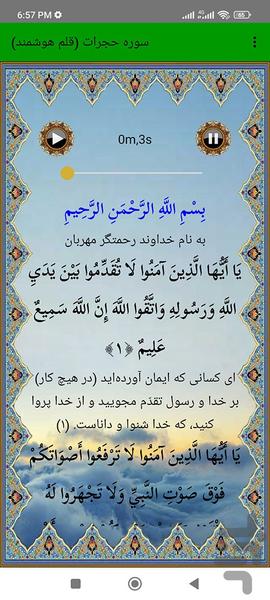 6:57 PM
4G
65
سوره حجرات (قلم هوشمند)
0m,3s
بِسْمِ اللَّهِ الرَّحْمَنِ الرَّحِيمِ
به نام خداوند رحمتگر مهربان
يَا أَيُّهَا الَّذِينَ آمَنُوا لَا تُقَدِّمُوا بَيْنَ يَدَيِ
اللَّهِ وَرَسُولِهِ وَاتَّقُوا اللَّهَ إِنَّ اللَّهَ سَمِيعٌ
عَلِيمٌ ﴿١﴾
ای کسانی که ایمان آورده‌اید (در هیچ کار)
بر خدا و رسول تقدّم مجویید و از خدا پروا
کنید، که خدا شنوا و داناست. (۱)
يَا أَيُّهَا الَّذِينَ آمَنُوا لَا تَرْفَعُوا أَصْوَاتَكُمْ
فَوْقَ صَوْتِ النَّبِيِّ وَلَا تَجْهَرُوا لَهُ